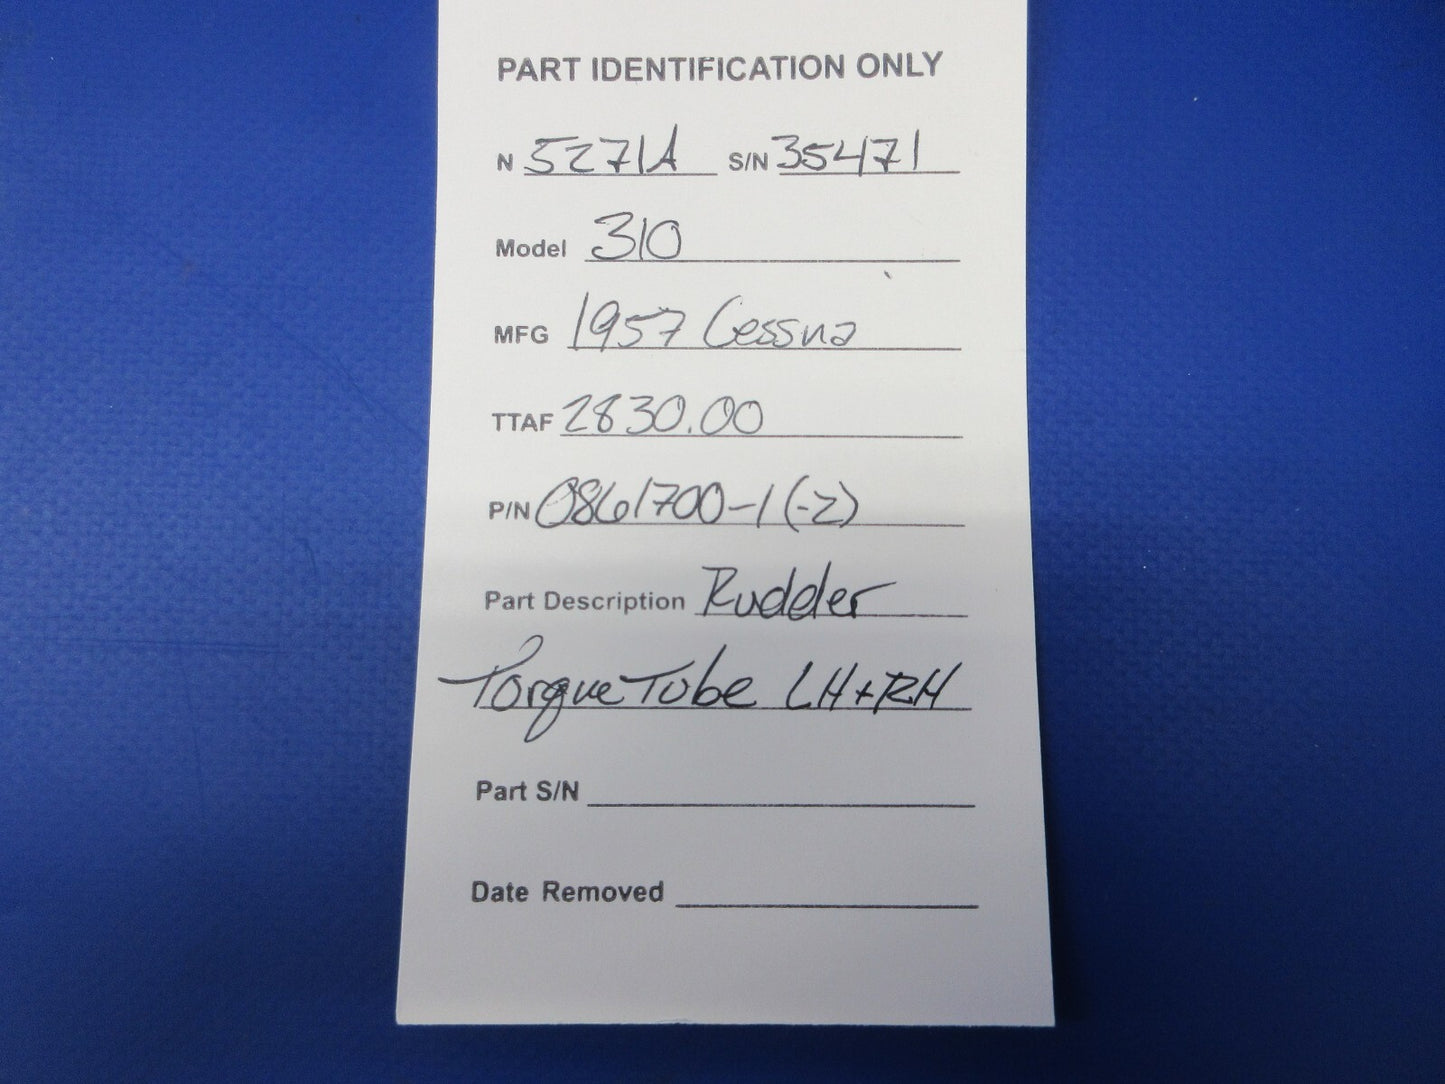 PART IDENTIFICATION ONLY
N 5271A S/N 35471
Model 310
MFG 1957 Cessna
TTAF 2830.00
P/N 0861700-1 (-2)
Part Description Rudder
Torque Tube LH+RH
Part S/N
Date Removed